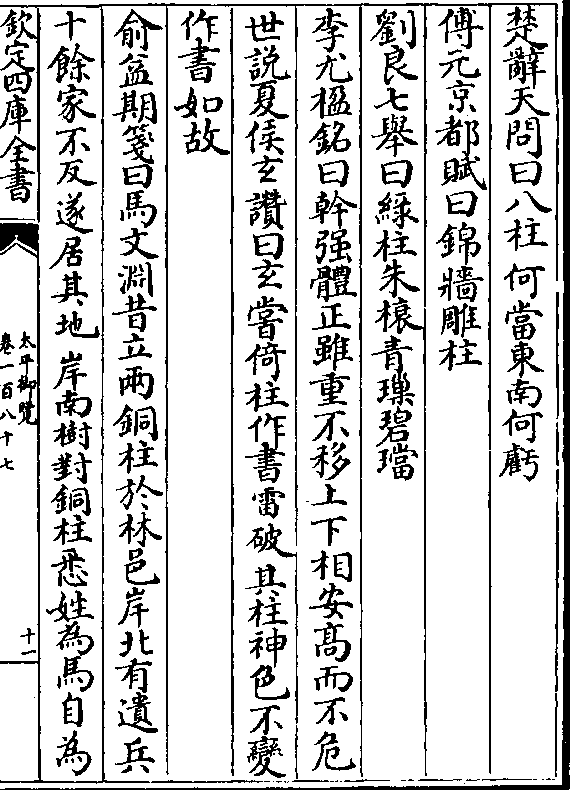 楚辭天問曰八柱何當東南何虧
傅元京都賦曰錦牆雕柱
劉良七舉曰緑柱朱榱青璅碧璫
李尤楹銘曰幹强體正雖重不移上下相安髙而不危
世說夏侯玄讚曰玄嘗倚柱作書雷破其柱神色不變
作書如故
俞益期箋曰馬文淵昔立兩銅柱於林邑岸北有遺兵
十餘家不反遂居其地岸南樹對銅柱悉姓為馬自為
欽定四庫全書
太平御覽
卷一百八十七
十一